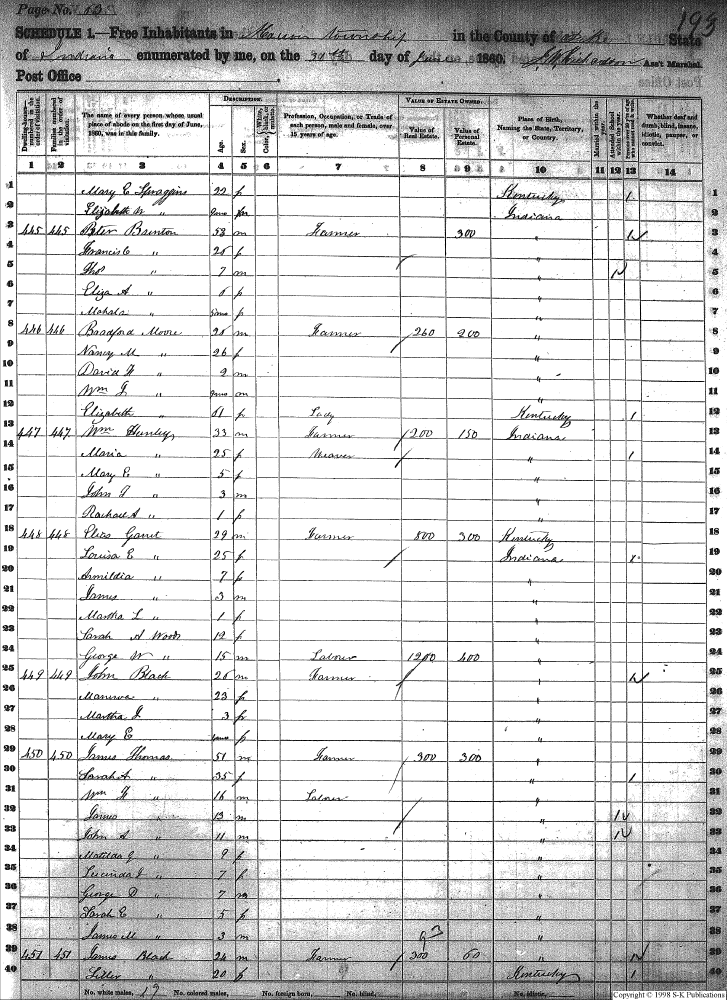 Page No. 13
193
SCHEDULE 1.—Free Inhabitants in Marion township in the County of State
of Indiana enumerated by me, on the 30th day of June 1860. Ass't Marshal.
Post Office
Dwelling-houses—numbered in the order of visitation.
Families numbered in the order of visitation.
The name of every person whose usual place of abode on the first day of June, 1860, was in this family.
DESCRIPTION.
Age.
Sex.
Color, White, black, or mulatto.
Profession, Occupation, or Trade of each person, male and female, over 15 years of age.
VALUE OF ESTATE OWNED.
Value of Real Estate.
Value of Personal Estate.
Place of Birth, Naming the State, Territory, or Country.
Married within the year.
Attended School within the year.
Persons over 20 y'rs of age who cannot read & write.
Whether deaf and dumb, blind, insane, idiotic, pauper, or convict.
1 2 3 4 5 6 7 8 9 10 11 12 13 14
1 Mary E Spraggins 22 f Kentucky 1 1
2 Elizabeth " Indiana 2
3 445 445 Peter Brinton 58 m Farmer 300 " 3
4 Francis E " 28 f " 4
5 Thos " 7 m " 5
6 Eliza A " 6 f " 6
7 Mahala " f " 7
8 446 446 Bradford Moore 28 m Farmer 260 200 " 8
9 Nancy M " 26 f " 9
10 David H " 2 m " 10
11 Wm J " m " 11
12 Elizabeth " 61 f Lady Kentucky 1 12
13 447 447 Wm Hunley 33 m Farmer 1200 150 Indiana 13
14 Maria " 25 f Weaver " 1 14
15 Mary E " 5 f " 15
16 John T " 3 m " 16
17 Rachael A " 1 f " 17
18 448 448 Elias Garret 29 m Farmer 800 300 Kentucky 18
19 Louisa E " 25 f Indiana 19
20 Armildia " 7 f " 20
21 James " 3 m " 21
22 Martha L " 1 f " 22
23 Sarah A Woods 12 f " 23
24 George W " 15 m Laborer 1200 400 " 24
25 449 449 John Black 26 m Farmer " 25
26 Manerva " 23 f " 26
27 Martha J " 3 f " 27
28 Mary E " f " 28
29 450 450 James Thomas 51 m Farmer 300 300 " 29
30 Sarah A " 35 f " 1 30
31 Wm H " 16 m Laborer " 31
32 James " 13 m " 32
33 John A " 11 m " 33
34 Matilda J " 9 f " 34
35 Lucinda J " 7 f " 35
36 George D " 7 m " 36
37 Sarah E " 5 f " 37
38 James M " 3 m " 38
39 451 451 James Black 24 m Farmer 300 60 " 39
40 " 20 f Kentucky 1 40
No. white males, 19 No. colored males, No. foreign born, No. blind, No. idiotic,
Copyright © 1998 S-K Publications